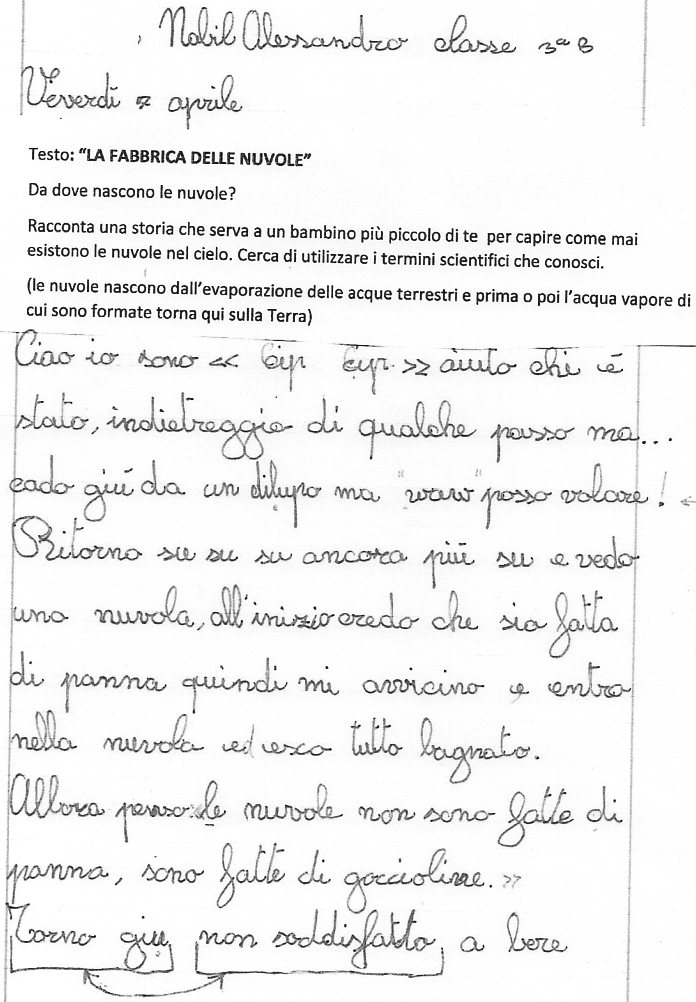 Nabil Alessandro classe 3ª B
Veverdì 7 aprile
Testo: “LA FABBRICA DELLE NUVOLE”
Da dove nascono le nuvole?
Racconta una storia che serva a un bambino più piccolo di te per capire come mai
esistono le nuvole nel cielo. Cerca di utilizzare i termini scientifici che conosci.
(le nuvole nascono dall’evaporazione delle acque terrestri e prima o poi l’acqua vapore di
cui sono formate torna qui sulla Terra)
Ciao io sono << Cip Cip >> aiuto chi è
stato, indietreggio di qualche passo ma...
cado giù da un dilupo ma "waw" posso volare!
Ritorno su su su ancora più su e vedo
una nuvola, all'inizio credo che sia fatta
di panna quindi mi avvicino e entro
nella nuvola ed esco tutto bagnato.
Allora penso: le nuvole non sono fatte di
panna, sono fatte di goccioline. >>
Torno giu, non soddisfatto, a bere